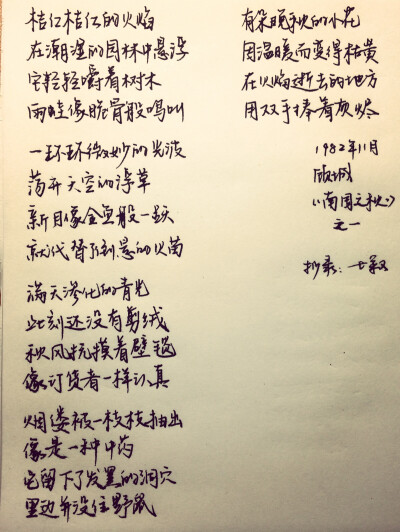 桔红桔红的火焰
在潮湿的园林中悬浮
它轻轻嚼着树木
雨蛙像脆骨般鸣叫
一环环微妙的光波
荡开天空的浮草
新月像金鱼般一跃
就代替了倒悬的火苗
满天渗化的青光
此刻还没有剪绒
秋风抚摸着壁毯
像订货者一样认真
烟缕被一枝枝抽出
像是一种中药
它留下了发黑的洞穴
里边并没住野鼠
有朵晚秋的小花
因温暖而变得枯黄
在火焰逝去的地方
用双手捧着灰烬
1982年11月
顾城
《南国之秋》
之一
抄录：